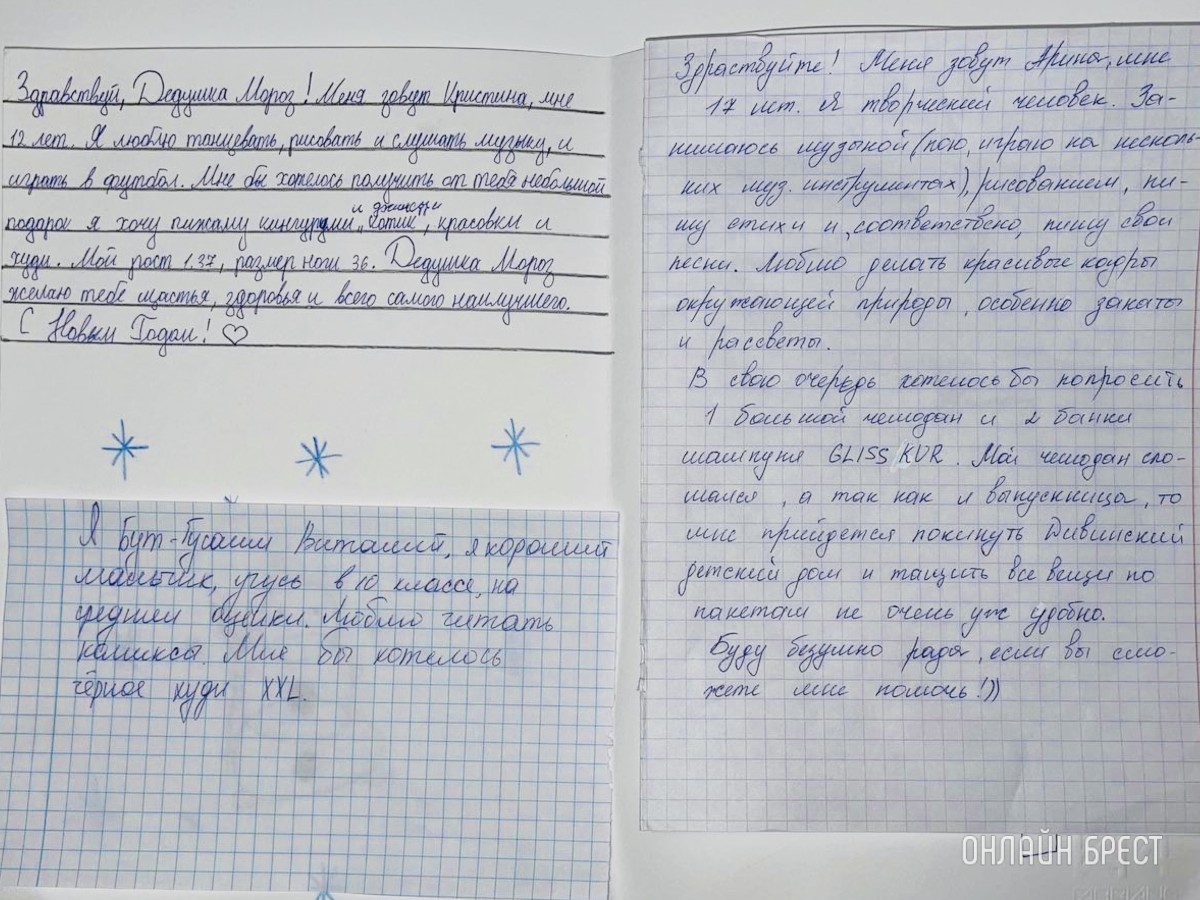 Здравствуй, Дедушка Мороз! Меня зовут Кристина, мне
12 лет. Я люблю танцевать, рисовать и слушать музыку, и
играть в футбол. Мне бы хотелось получить от тебя небольшой
и джинсы и
подарок я хочу пижаму кингуруми "котик", красовки и
худи. Мой рост 1.37, размер ноги 36. Дедушка Мороз
желаю тебе щастья, здоровья и всего самого наилучшего.
С Новым Годом!
Я Бут-Гусаим Виталий, я хороший
мальчик, учусь в 10 классе, на
средние оценки. Люблю читать
комиксы. Мне бы хотелось
чёрное худи XXL.
Здраствуйте! Меня зовут Арина, мне
17 лет. Я творческий человек. За-
нимаюсь музыкой (пою, играю на несколь-
ких муз. инструментах), рисованием, пи-
шу стихи и, соответствено, пишу свои
песни. Люблю делать красивые кадры
окружающей природы, особенно закаты
и рассветы.
В свою очередь хотелось бы попросить
1 большой чемодан и 2 банки
шампуня GLISS KUR. Мой чемодан сло-
мался, а так как я выпускница, то
мне прийдется покинуть Дивинский
детский дом и тащить все вещи по
пакетам не очень уж удобно.
Буду безумно рада, если вы смо-
жете мне помочь!))
ОНЛАЙН БРЕСТ